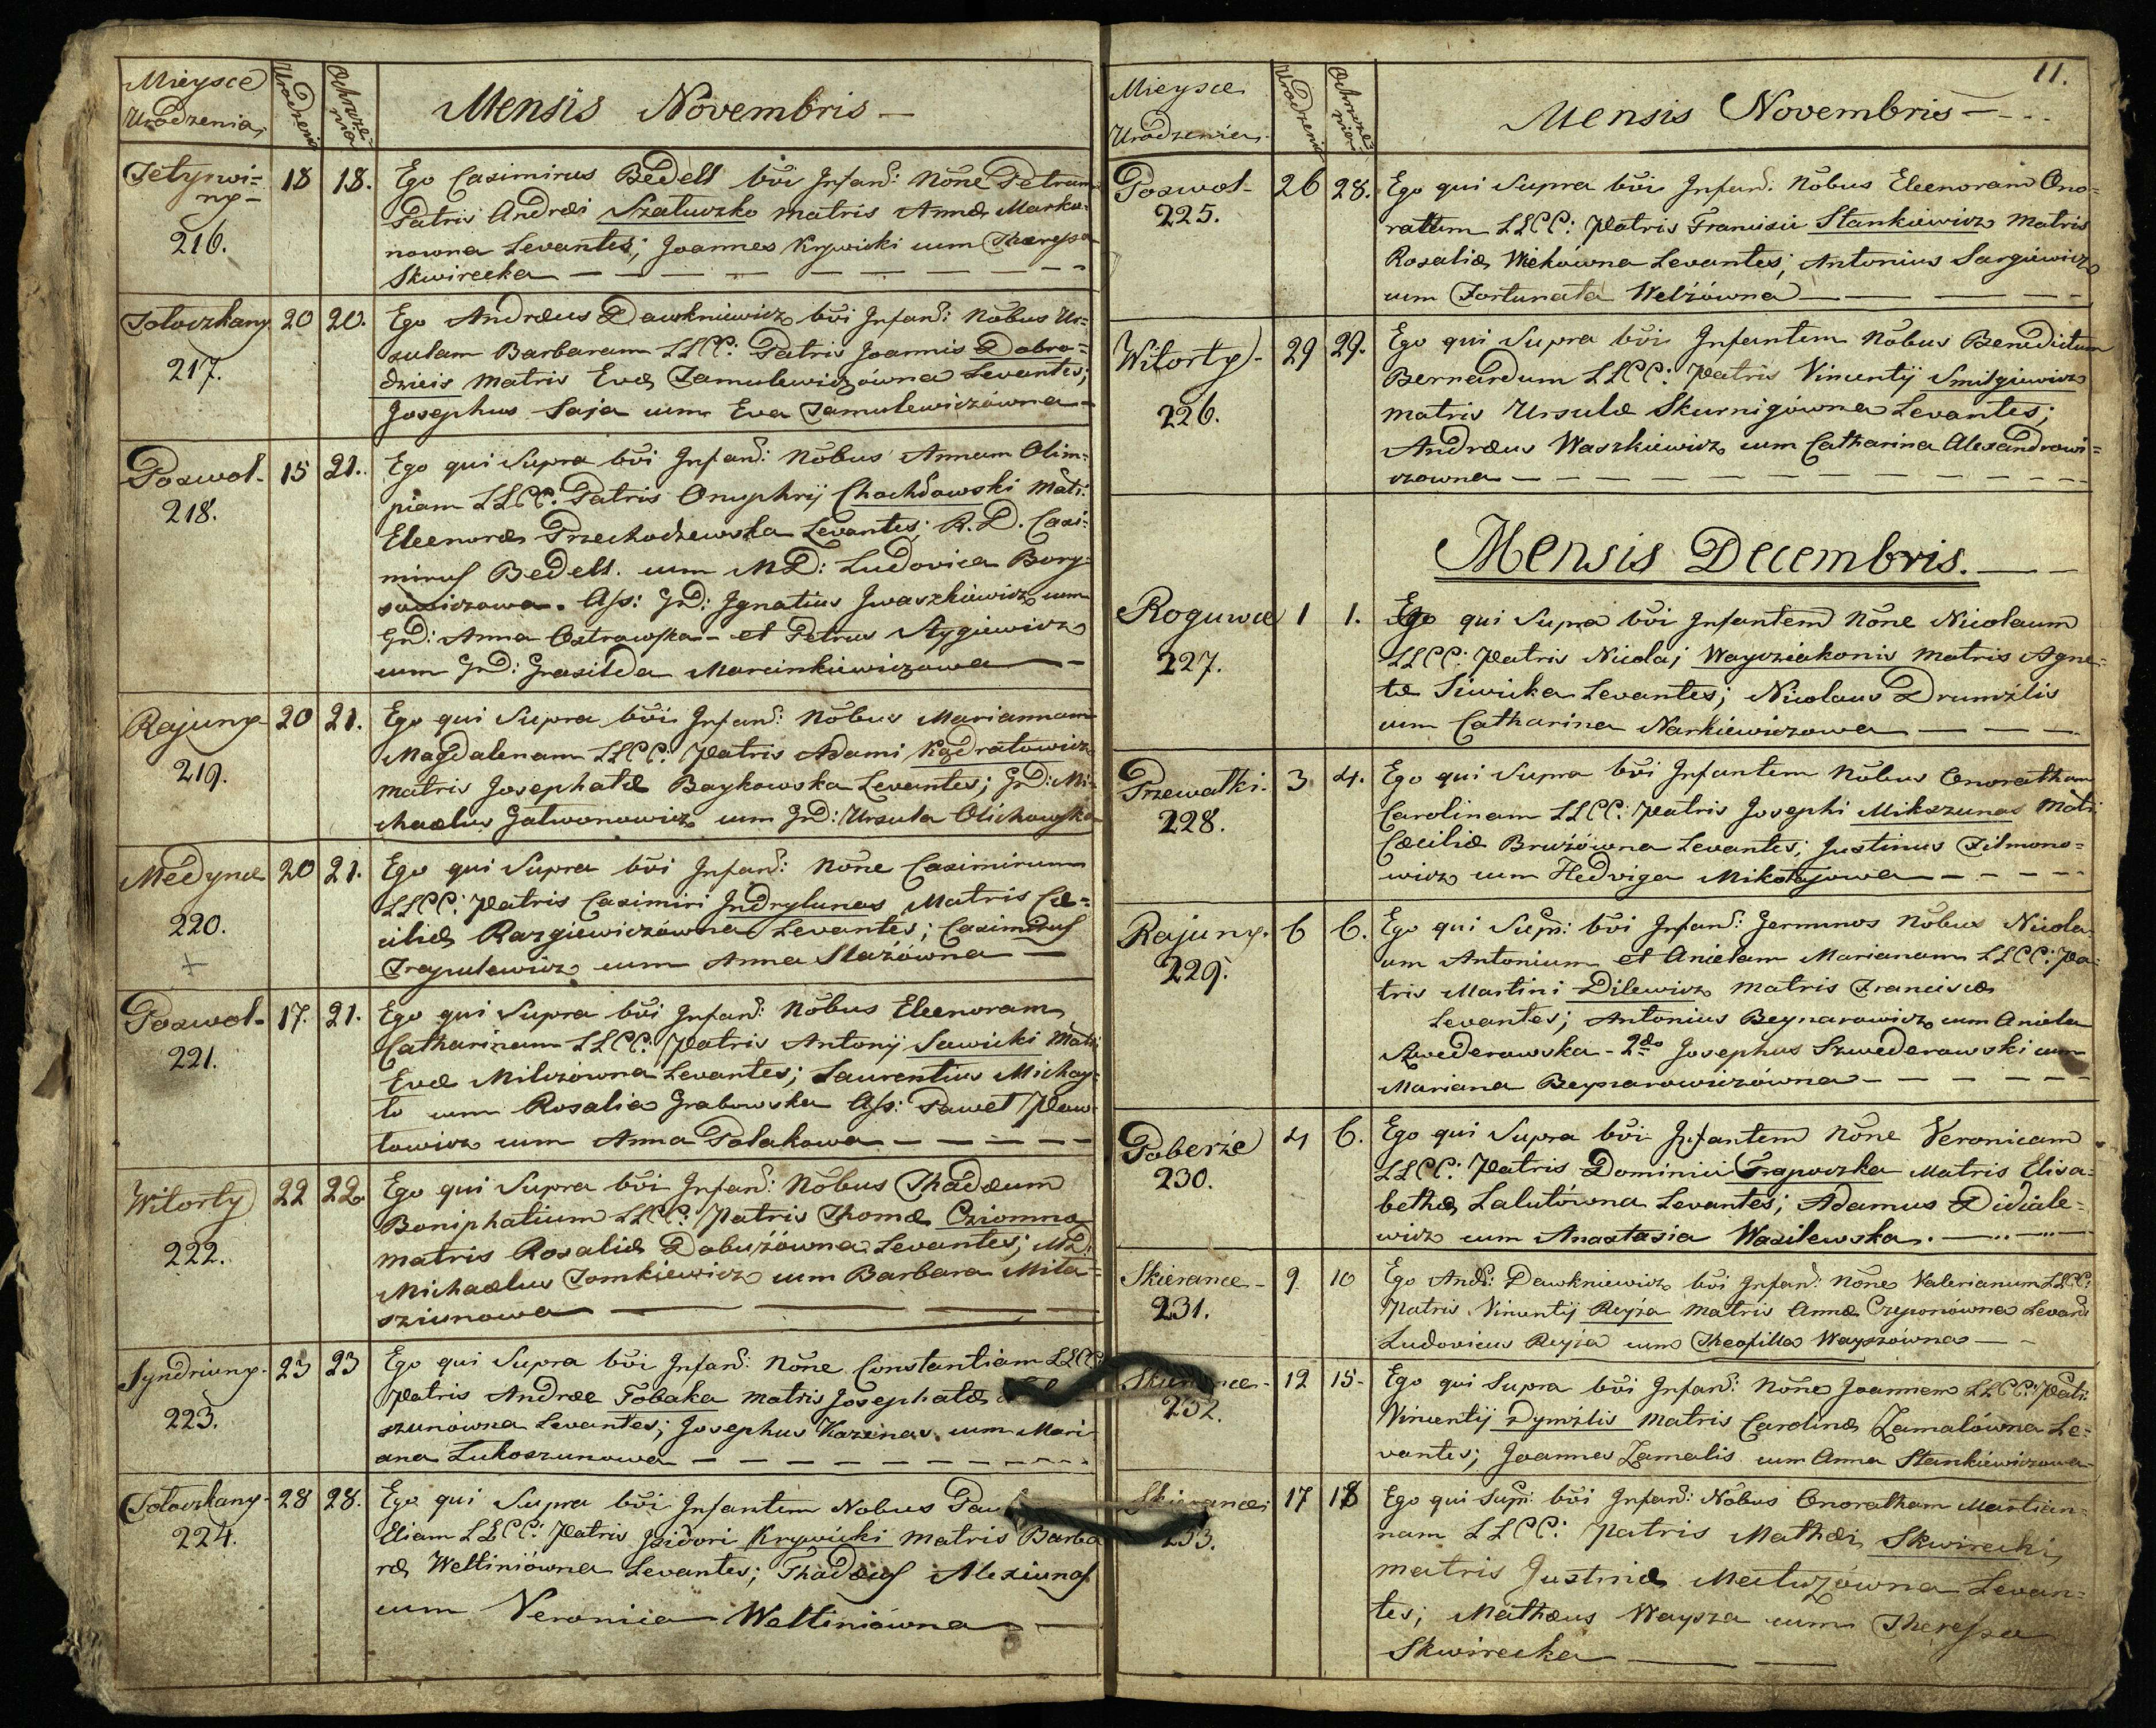 Mieysce
Urodzenia
Urodzenia
Ochrzcze=
nia
Mensis Novembris —
18 18. Ego Casimirus Bedell bvi Infand: Nõne Petrum
216. Patris Andræi Szaluszko Matris Annæ Marko=
nowna Levantes; Joannes Krywicki cum Theressa
Skwirecka
20 20. Ego Andræus Dawkniewicz bvi Infand: Nõbus Ur=
217. sulam Barbaram LLCC: Patris Joannis Dobro=
dzieis Matris Evæ Jamulewiczówna Levantes;
Josephus Saja cum Eva Jamulewiczówna
Poswol- 15 21. Ego qui Supra bvi Infand: Nõbus Annam Olim=
218. piam LLCC: Patris Onuphrij Chochdowski Matri:
Eleenoræ Przechodzewska Levantes; R.D. Casi=
mirus Bedell. cum MD: Ludovica Bory=
sowiczowa. Ass: GD: Ignatius Iwaszkiewicz cum
GD: Anna Ostrowska - et Petrus Stygiewicz
cum GD: Grasilda Marcinkiewiczowa
Rajuny 20 21. Ego qui Supra bvi Infand: Nõbus Mariannam
219. Magdalenam LLCC: Patris Adami Kędratowicz
Matris Josephatæ Baykowska Levantes; GD: Mi=
chaelus Gatwonowicz cum GD: Ursula Olichowska
Medynie 20 21. Ego qui Supra bvi Infand: Nõne Casimirum
220. LLCC: Patris Casimiri Indrylunas Matris Cæ=
ciliæ Razgiewiczówna Levantes; Casimirus
Trapulewicz cum Anna Stazówna
Poswol- 17. 21. Ego qui Supra bvi Infand: Nõbus Eleenoram
221. Catharinam LLCC: Patris Antonij Sawicki Matri
Evæ Milczówna Levantes; Laurentius Michay=
lo cum Rosalia Grabowska Ass: Pawel Paw=
lowicz cum Anna Polakowa
Witorty 22 22 Ego qui Supra bvi Infand: Nõbus Thadæum
222. Boniphatium LLCC: Patris Thomæ Cziomna
Matris Rosaliæ Dabużówna Levantes; MD:
Michaelus Tomkiewicz cum Barbara Mila=
sziunowa
Syndriuny- 23 23 Ego qui Supra bvi Infand: Nõne Constantiam LLCC
223. Patris Andræe Tobaka Matris Josephatæ
szunówna Levantes; Josephus Kazenas cum Mari=
ana Lukoszunowa
Toloczkany- 28 28. Ego qui Supra bvi Infantem Nobus
224. Eliam LLCC: Patris Isidori Krywicki Matris Barba
ræ Weltiniówna Levantes; Thadæus Alexiunas
cum Veronica Weltiniówna
11.
Mieysce
Urodzenia
Urodzenia
Ochrzcze
nia
Mensis Novembris
Poswol- 26 28. Ego qui Supra bvi Infand: Nõbus Eleenoram Ono=
225. ratam LLCC: Patris Francisci Stankiewicz Matris
Rosaliæ Wiekówna Levantes; Antonius Sargiewicz
cum Fortunata Welżówna
Witorty- 29 29. Ego qui Supra bvi Infantem Nõbus Benedictum
226. Bernardum LLCC: Patris Vincentij Smilgiewicz
Matris Ursulæ Skurnigówna Levantes;
Andræus Waszkiewicz cum Catharina Alexandrowi=
czowna
Mensis Decembris.
Roguwce 1 1. Ego qui Supra bvi Infantem Nõne Nicolaum
227. LLCC: Patris Nicolaj Wayciakonis Matris Agne=
tæ Siwicka Levantes; Nicolaus Drumżlis
cum Catharina Narkiewiczowa
Przewalki. 3 4. Ego qui Supra bvi Infantem Nõbus Onoratham
228. Carolinam LLCC: Patris Josephi Mikszunas Matri
Cæciliæ Brużówna Levantes; Justinus Tilmono=
wicz cum Hedviga Mikołajowa
Rajuny. 6 6. Ego qui Supr: bvi Infand: Germinos Nõbus Nicola
229. um Antonium et Anielam Marianam LLCC: Pa=
tris Martini Dilewicz Matris Franciscæ
Levantes; Antonius Beynarowicz cum Aniela
Szwederowska - 2do Josephus Szwederowski cum
Mariana Beynarowiczówna
Poberże 4 6. Ego qui Supra bvi Infantem Nõne Veronicam
230. LLCC: Patris Dominici Trapuczka Matris Elisa=
bethæ Lalutówna Levantes; Adamus Didziule=
wicz cum Anastasia Wasilewska.
Skierance- 9 10 Ego Andr: Dawkniewicz bvi Infand: Nõne Valerianum LLCC:
231. Patris Vincentij Reyża Matris Annæ Czeponówna Levand
Ludovicus Reyża cum Theofilla Wayszówna
Skierance- 12 15- Ego qui Supra bvi Infand: Nõne Joannem LLCC: Patri:
232. Vincentij Dymżlis Matris Carolinæ Zamalówna Le=
vantes; Joannes Zamalis cum Anna Stankiewiczowa
Skierance 17 18 Ego qui Supr: bvi Infand: Nõbus Onoratham Marcian=
233. nam LLCC: Patris Mathæi Skwirecki
Matris Justinæ Matuzówna Levan=
tes; Mathæus Waysza cum Theressa
Skwirecka